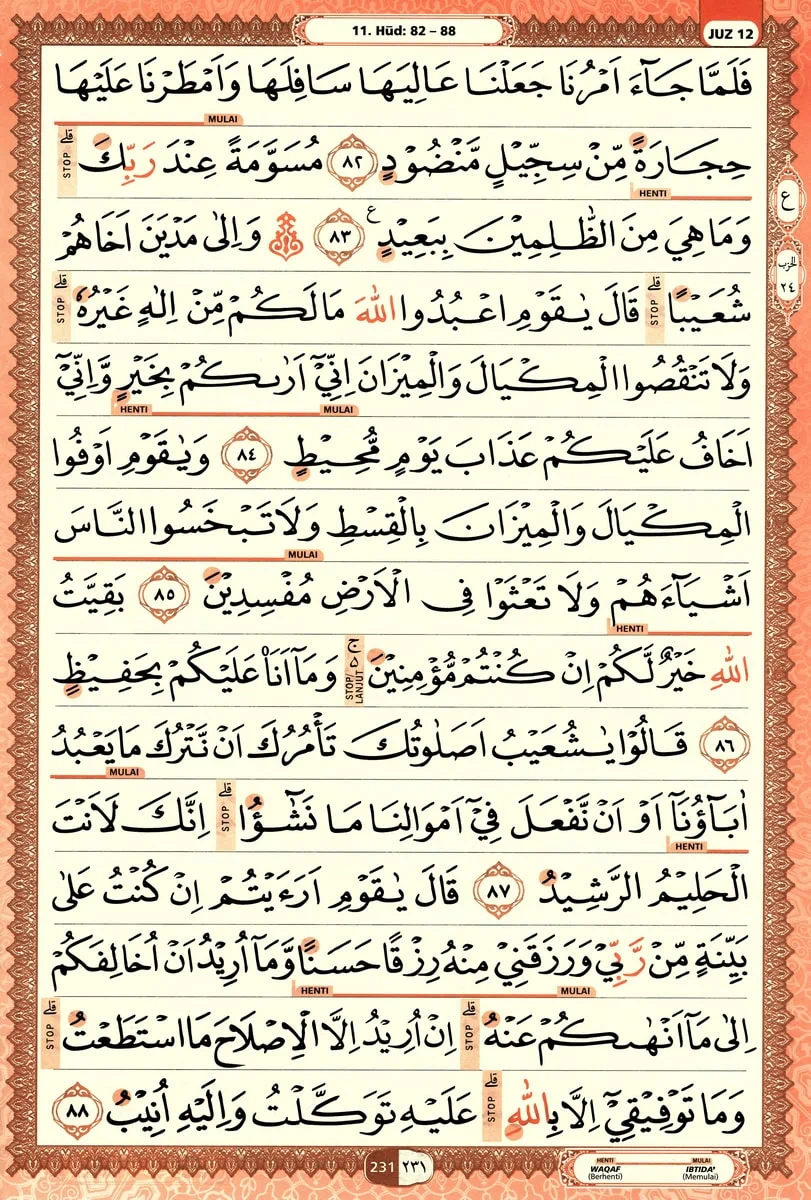 11. Hūd: 82 – 88
JUZ 12
فَلَمَّا جَاۤءَ اَمْرُنَا جَعَلْنَا عَالِيَهَا سَافِلَهَا وَاَمْطَرْنَا عَلَيْهَا
MULAI
حِجَارَةً مِّنْ سِجِّيْلٍ مَّنْضُوْدٍ ٨٢ مُسَوَّمَةً عِنْدَ رَبِّكَ ۗ STOP
HENTI
وَمَا هِيَ مِنَ الظّٰلِمِيْنَ بِبَعِيْدٍ ع ٨٣ ۞ وَاِلٰى مَدْيَنَ اَخَاهُمْ
ع
الحزب
٢٤
شُعَيْبًا ۗ STOP قَالَ يٰقَوْمِ اعْبُدُوا اللّٰهَ مَا لَكُمْ مِّنْ اِلٰهٍ غَيْرُهٗ ۗ STOP
وَلَا تَنْقُصُوا الْمِكْيَالَ وَالْمِيْزَانَ اِنِّيْٓ اَرٰىكُمْ بِخَيْرٍ وَّاِنِّيْٓ
MULAI HENTI
اَخَافُ عَلَيْكُمْ عَذَابَ يَوْمٍ مُّحِيْطٍ ٨٤ وَيٰقَوْمِ اَوْفُوا
الْمِكْيَالَ وَالْمِيْزَانَ بِالْقِسْطِ وَلَا تَبْخَسُوا النَّاسَ
MULAI
اَشْيَاۤءَهُمْ وَلَا تَعْثَوْا فِى الْاَرْضِ مُفْسِدِيْنَ ٨٥ بَقِيَّتُ
HENTI
اللّٰهِ خَيْرٌ لَّكُمْ اِنْ كُنْتُمْ مُّؤْمِنِيْنَ ۚ STOP/LANJUT وَمَآ اَنَا۠ عَلَيْكُمْ بِحَفِيْظٍ
٨٦ قَالُوْا يٰشُعَيْبُ اَصَلٰوتُكَ تَأْمُرُكَ اَنْ نَّتْرُكَ مَا يَعْبُدُ
MULAI
اٰبَاۤؤُنَآ اَوْ اَنْ نَّفْعَلَ فِيْٓ اَمْوَالِنَا مَا نَشٰۤؤُا ۗ STOP اِنَّكَ لَاَنْتَ
HENTI
الْحَلِيْمُ الرَّشِيْدُ ٨٧ قَالَ يٰقَوْمِ اَرَءَيْتُمْ اِنْ كُنْتُ عَلٰى
بَيِّنَةٍ مِّنْ رَّبِّيْ وَرَزَقَنِيْ مِنْهُ رِزْقًا حَسَنًا وَّمَآ اُرِيْدُ اَنْ اُخَالِفَكُمْ
MULAI HENTI
اِلٰى مَآ اَنْهٰىكُمْ عَنْهُ ۗ STOP اِنْ اُرِيْدُ اِلَّا الْاِصْلَاحَ مَا اسْتَطَعْتُ ۗ STOP
وَمَا تَوْفِيْقِيْٓ اِلَّا بِاللّٰهِ ۗ STOP عَلَيْهِ تَوَكَّلْتُ وَاِلَيْهِ اُنِيْبُ ٨٨
231 ٢٣١
HENTI WAQAF (Berhenti)
MULAI IBTIDA' (Memulai)